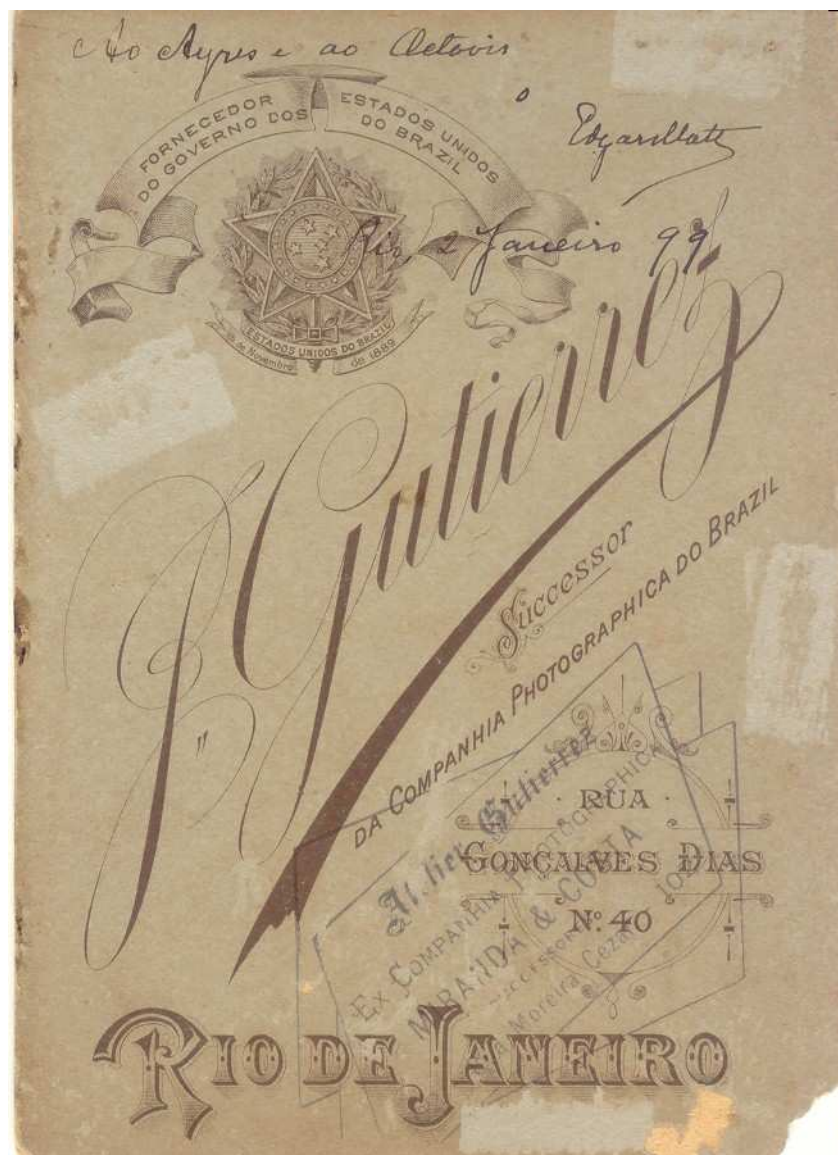 Ao Ayres e ao Octavio
o
FORNECEDOR DO GOVERNO DOS
ESTADOS UNIDOS DO BRAZIL
Rio, 2 Janeiro 99
ESTADOS UNIDOS DO BRAZIL
15 de Novembro de 1889
J. Gutierrez
Successor
DA COMPANHIA PHOTOGRAPHICA DO BRAZIL
RUA
GONÇALVES DIAS
Nº 40
Atelier Gutierrez
EX COMPANHIA PHOTOGRAPHICA
MIRANDA & COSTA
Successores
Moreira Cezar
RIO DE JANEIRO